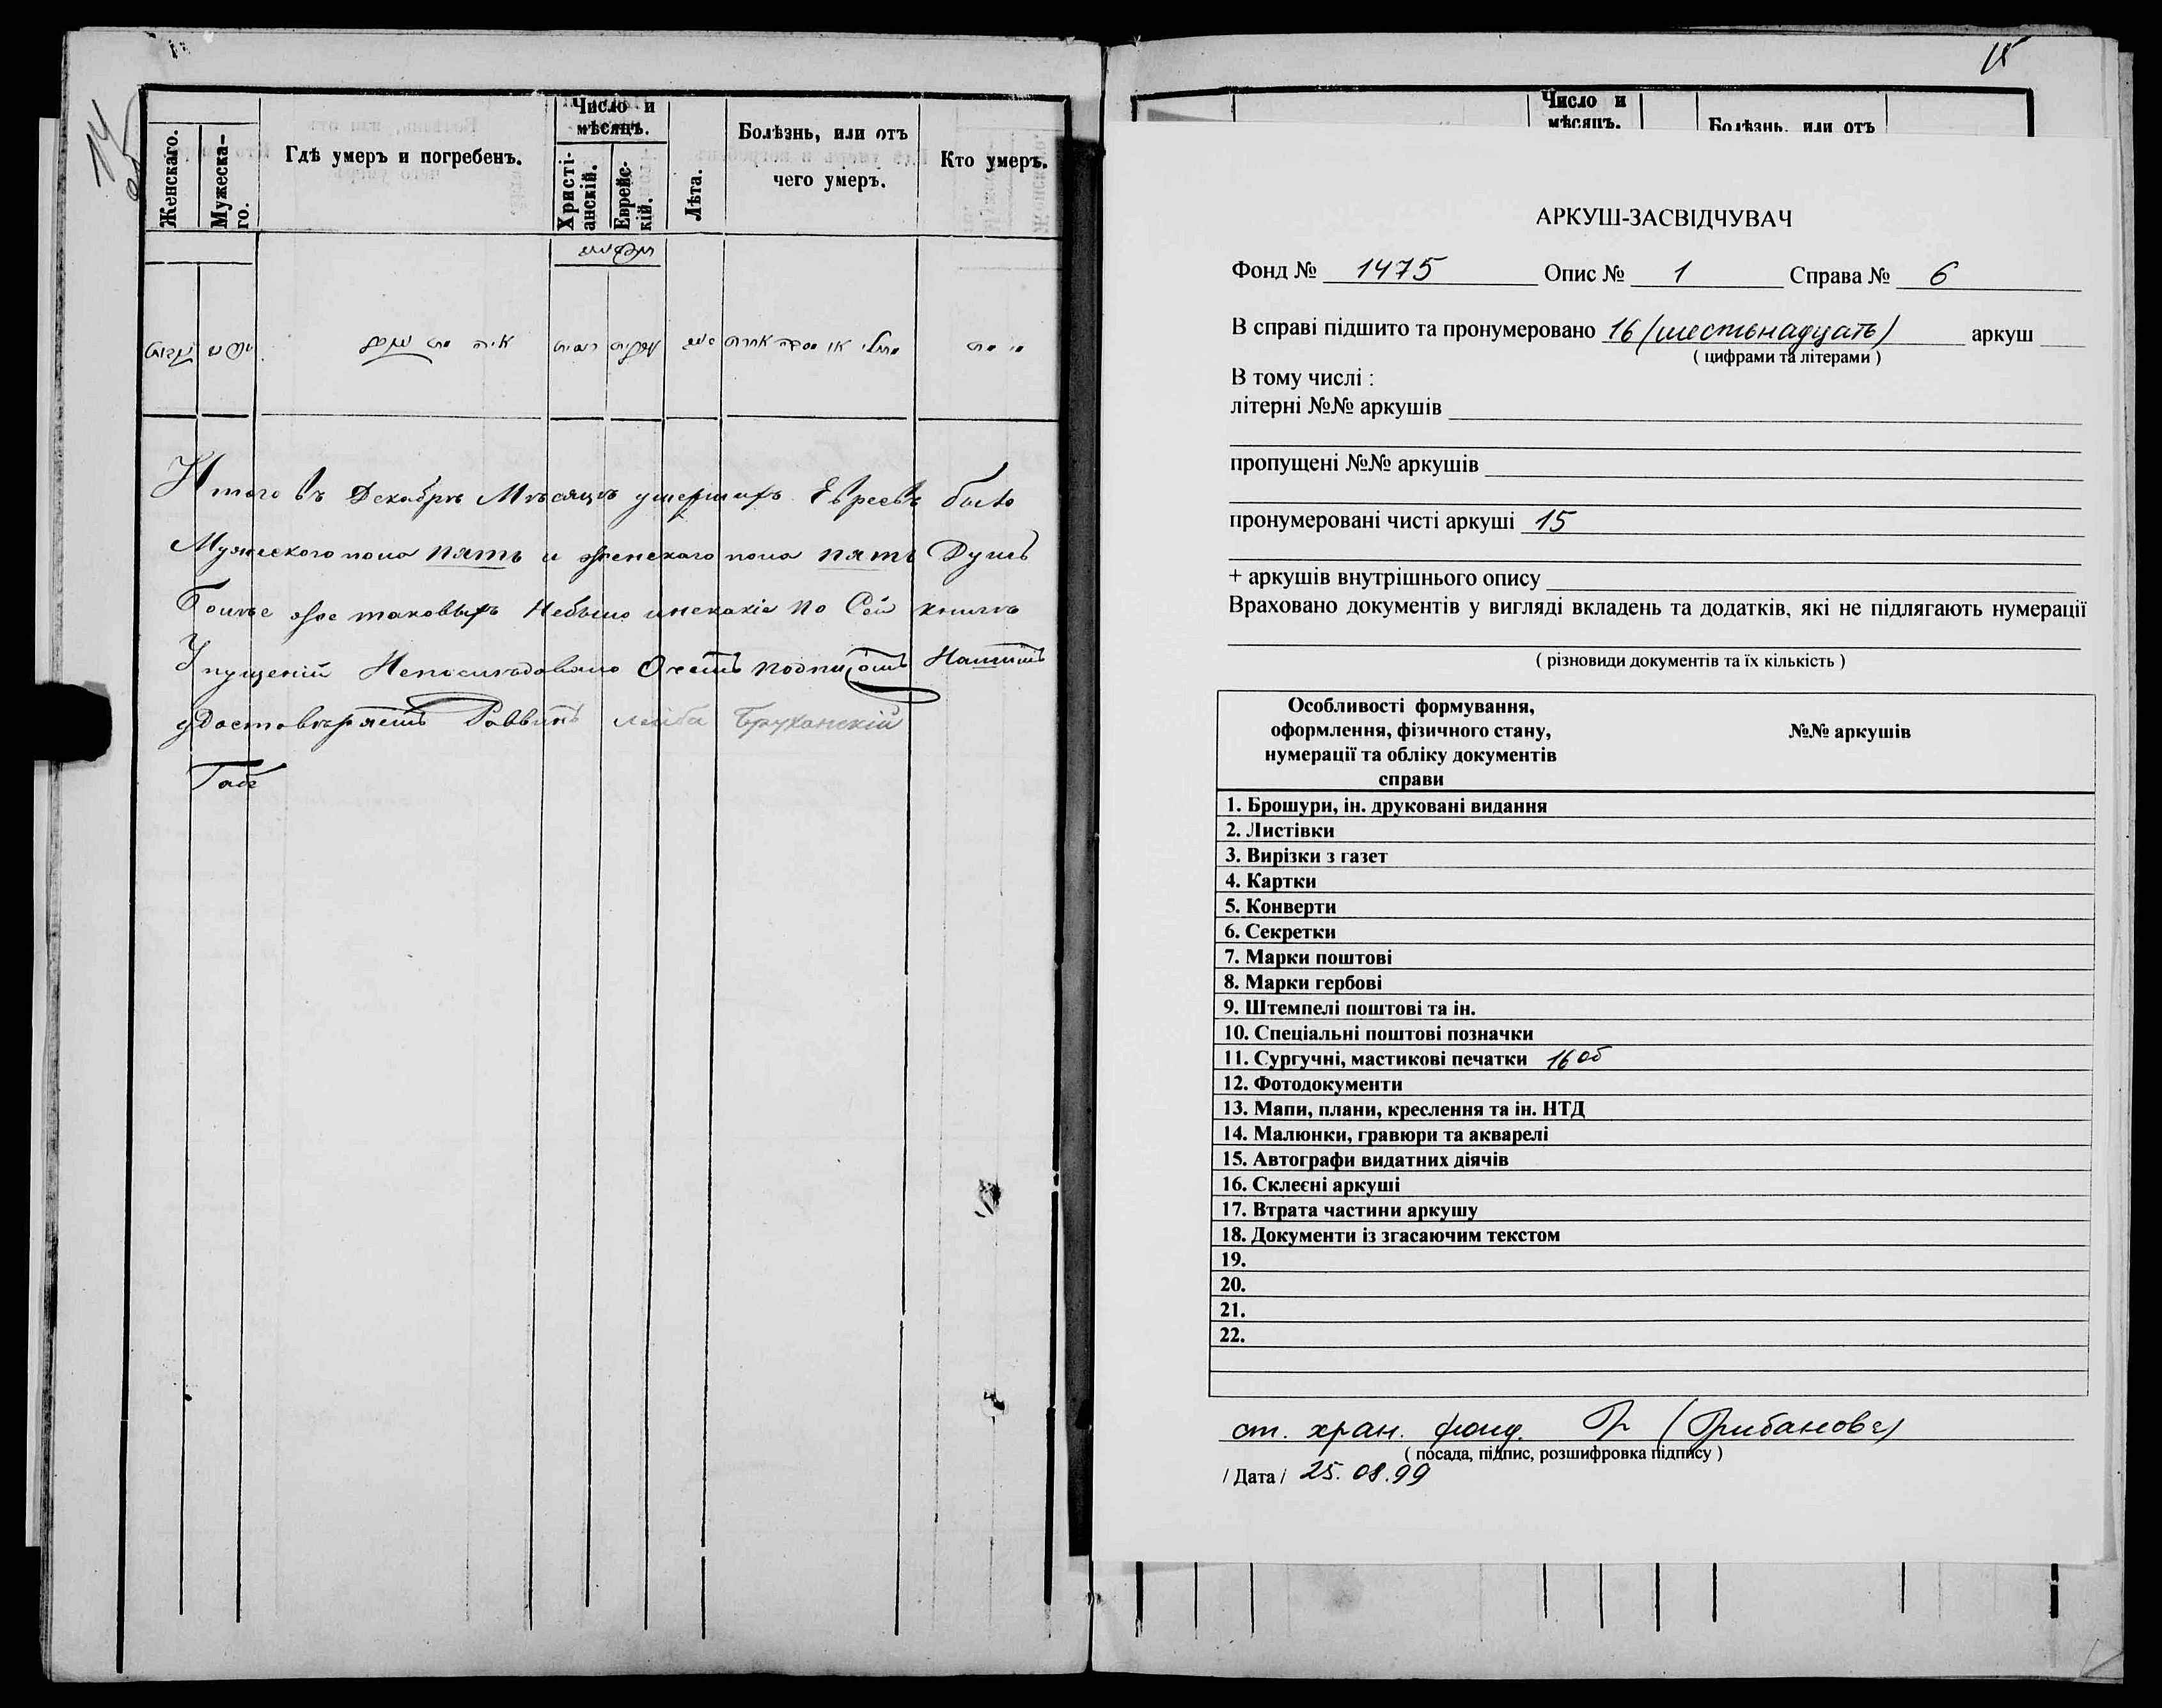 14
об
Женскаго.
Мужеска-
го.
Гдѣ умеръ и погребенъ.
Число и
мѣсяцъ.
Христі-
анскій.
Еврейс-
кій.
Лѣта.
Болѣзнь, или отъ
чего умеръ.
Кто умеръ.
Итого въ Декабрѣ Мѣсяцѣ умершихъ Евреевъ было
Мужескаго пола пять и женскаго пола пять Душъ
Болѣе же таковыхъ Небыло по Сей книгѣ
Упущеній Непослѣдовало подписомъ Нашимъ
удостовѣряемъ Раввинъ Лейба
Число и
мѣсяцъ.
Болѣзнь, или отъ
АРКУШ-ЗАСВІДЧУВАЧ
Фонд № 1475 Опис № 1 Справа № 6
В справі підшито та пронумеровано 16 (шестьнадцать) аркуш
( цифрами та літерами )
В тому числі :
літерні №№ аркушів
пропущені №№ аркушів
пронумеровані чисті аркуші 15
+ аркушів внутрішнього опису
Враховано документів у вигляді вкладень та додатків, які не підлягають нумерації
( різновиди документів та їх кількість )
Особливості формування,
оформлення, фізичного стану,
нумерації та обліку документів
справи
№№ аркушів
1. Брошури, ін. друковані видання
2. Листівки
3. Вирізки з газет
4. Картки
5. Конверти
6. Секретки
7. Марки поштові
8. Марки гербові
9. Штемпелі поштові та ін.
10. Спеціальні поштові позначки
11. Сургучні, мастикові печатки 16 об
12. Фотодокументи
13. Мапи, плани, креслення та ін. НТД
14. Малюнки, гравюри та акварелі
15. Автографи видатних діячів
16. Склеєні аркуші
17. Втрата частини аркушу
18. Документи із згасаючим текстом
19.
20.
21.
22.
ст. хран. фонд. (Грибанова)
( посада, підпис, розшифровка підпису )
/ Дата / 25.08.99